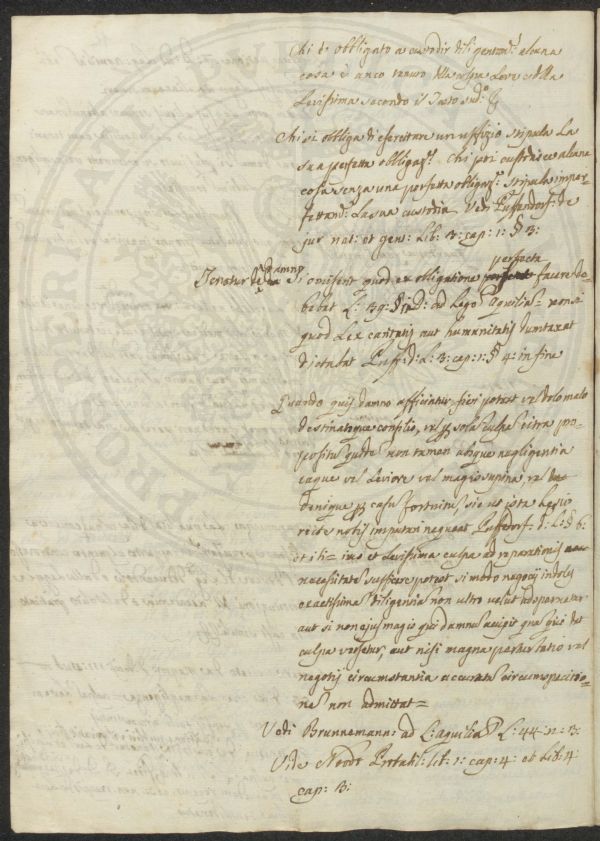 Chi è obbligato a custodir diligentem.e alcuna
cosa è anco tenuto della colpa Leve e della
Levissima secondo il Testo sud.o
Chi si obbliga di esercitare un uffizio stipula La
sua perfetta obbligaz.e Chi poi custodisce alcuna
cosa senza una perfetta obligaz.e stipula imper=
fettam.e La sua custodia Vedi Puffendorf: de
jur nat: et gent: Lib: 3: cap: 1: § 3:
perfecta
Tenetur de damno si omiserit quod ex obligatione facere de=
bebat L: 39: § D: ad Leg: Aquilia= non si
quod Lex caritatis aut humanitatis dumtaxat
dictabat Puff: d: L: 3: cap: 1: § 4: in fine
Quando quis damno afficiatur fieri potest vel dolo malo
destinatoque consilio, vel sola culpa citra pro=
positu quide non tamen absque negligentia
eaque vel Leviore vel magis supina vel
denique casu fortuitu, sic ut ista Lesio
recte nobis imputari nequeat Puffendorf: d: L: § 6:
et ili= imo et Levissima culpa ad reparationis
necessitate sufficere potest si modo negocij indoles
exactissima diligentia non ultro velut adspernetur
aut si non ejus magis qui damnu accipit qua qui dat
culpa versetur, aut nisi magna perturbatio vel
negotij circumstantia accurata circumspectio=
ne non admittat=
Vedi Brunnemann: ad L: aquilia L: 44: n: 3:
Vide Noodt Probabil: lib: 1: cap: 4: et Lib: 4:
cap: 3: